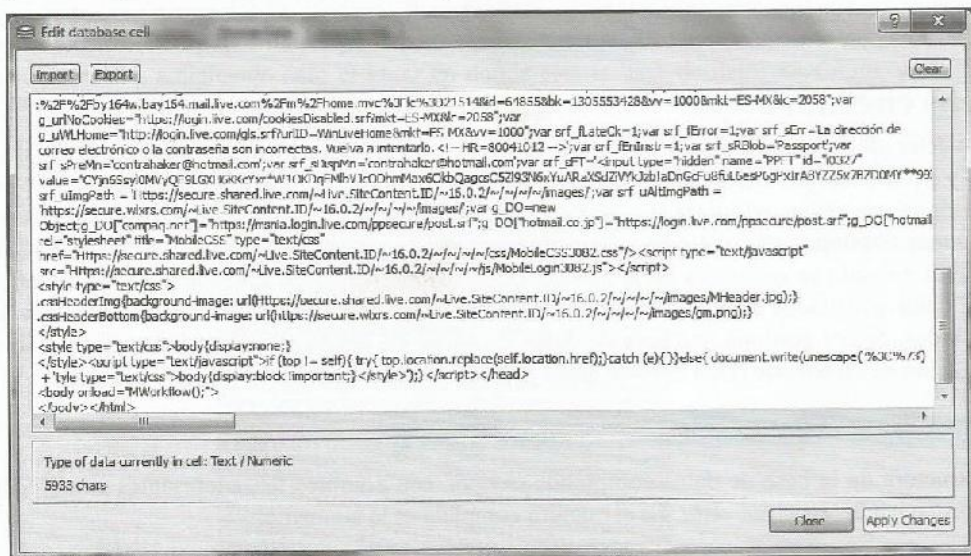 Edit database cell
Import Export Clear
g_urlNoCookies="https://login.live.com/cookiesDisabled.srf?mkt=ES-MX&lc=2058";var
g_uWLHome="http://login.live.com/gls.srf?urlID=WinLiveHome&mkt=ES-MX&vv=1000";var srf_fLateCk=1;var srf_fError=1;var srf_sErr='La dirección de
correo electrónico o la contraseña son incorrectas. Vuelva a intentarlo. <!-- HR=80041012 -->';var srf_fEnInstr=1;var srf_sRBlob='Passport';var
srf_sPreMn='contrahaker@hotmail.com';var srf_sDispMn='contrahaker@hotmail.com';var srf_sFT='<input type="hidden" name="PPFT" id="i0327"
srf_uImgPath = 'Https://secure.shared.live.com/~Live.SiteContent.ID/~16.0.2/~/~/~/~/images/';var srf_uAltImgPath =
'https://secure.wlxrs.com/~Live.SiteContent.ID/~16.0.2/~/~/~/~/images/';var g_DO=new
Object;g_DO["compaq.net"]="https://msnia.login.live.com/ppsecure/post.srf";g_DO["hotmail.co.jp"]="https://login.live.com/ppsecure/post.srf";g_DO["hotmail
rel="stylesheet" title="MobileCSS" type="text/css"
href="Https://secure.shared.live.com/~Live.SiteContent.ID/~16.0.2/~/~/~/~/css/MobileCSS3082.css"/><script type="text/javascript"
src="Https://secure.shared.live.com/~Live.SiteContent.ID/~16.0.2/~/~/~/~/js/MobileLogin3082.js"></script>
<style type="text/css">
.cssHeaderImg{background-image: url(Https://secure.shared.live.com/~Live.SiteContent.ID/~16.0.2/~/~/~/~/images/MHeader.jpg);}
.cssHeaderBottom{background-image: url(https://secure.wlxrs.com/~Live.SiteContent.ID/~16.0.2/~/~/~/~/images/gm.png);}
</style>
<style type="text/css">body{display:none;}
</style><script type="text/javascript">if (top != self){ try{ top.location.replace(self.location.href);}catch (e){ }}else{ document.write(unescape('%3C%73')
+ 'tyle type="text/css">body{display:block !important;}</style>');} </script></head>
<body onload="MWorkflow();">
</body></html>
Type of data currently in cell: Text / Numeric
5933 chars
Close Apply Changes